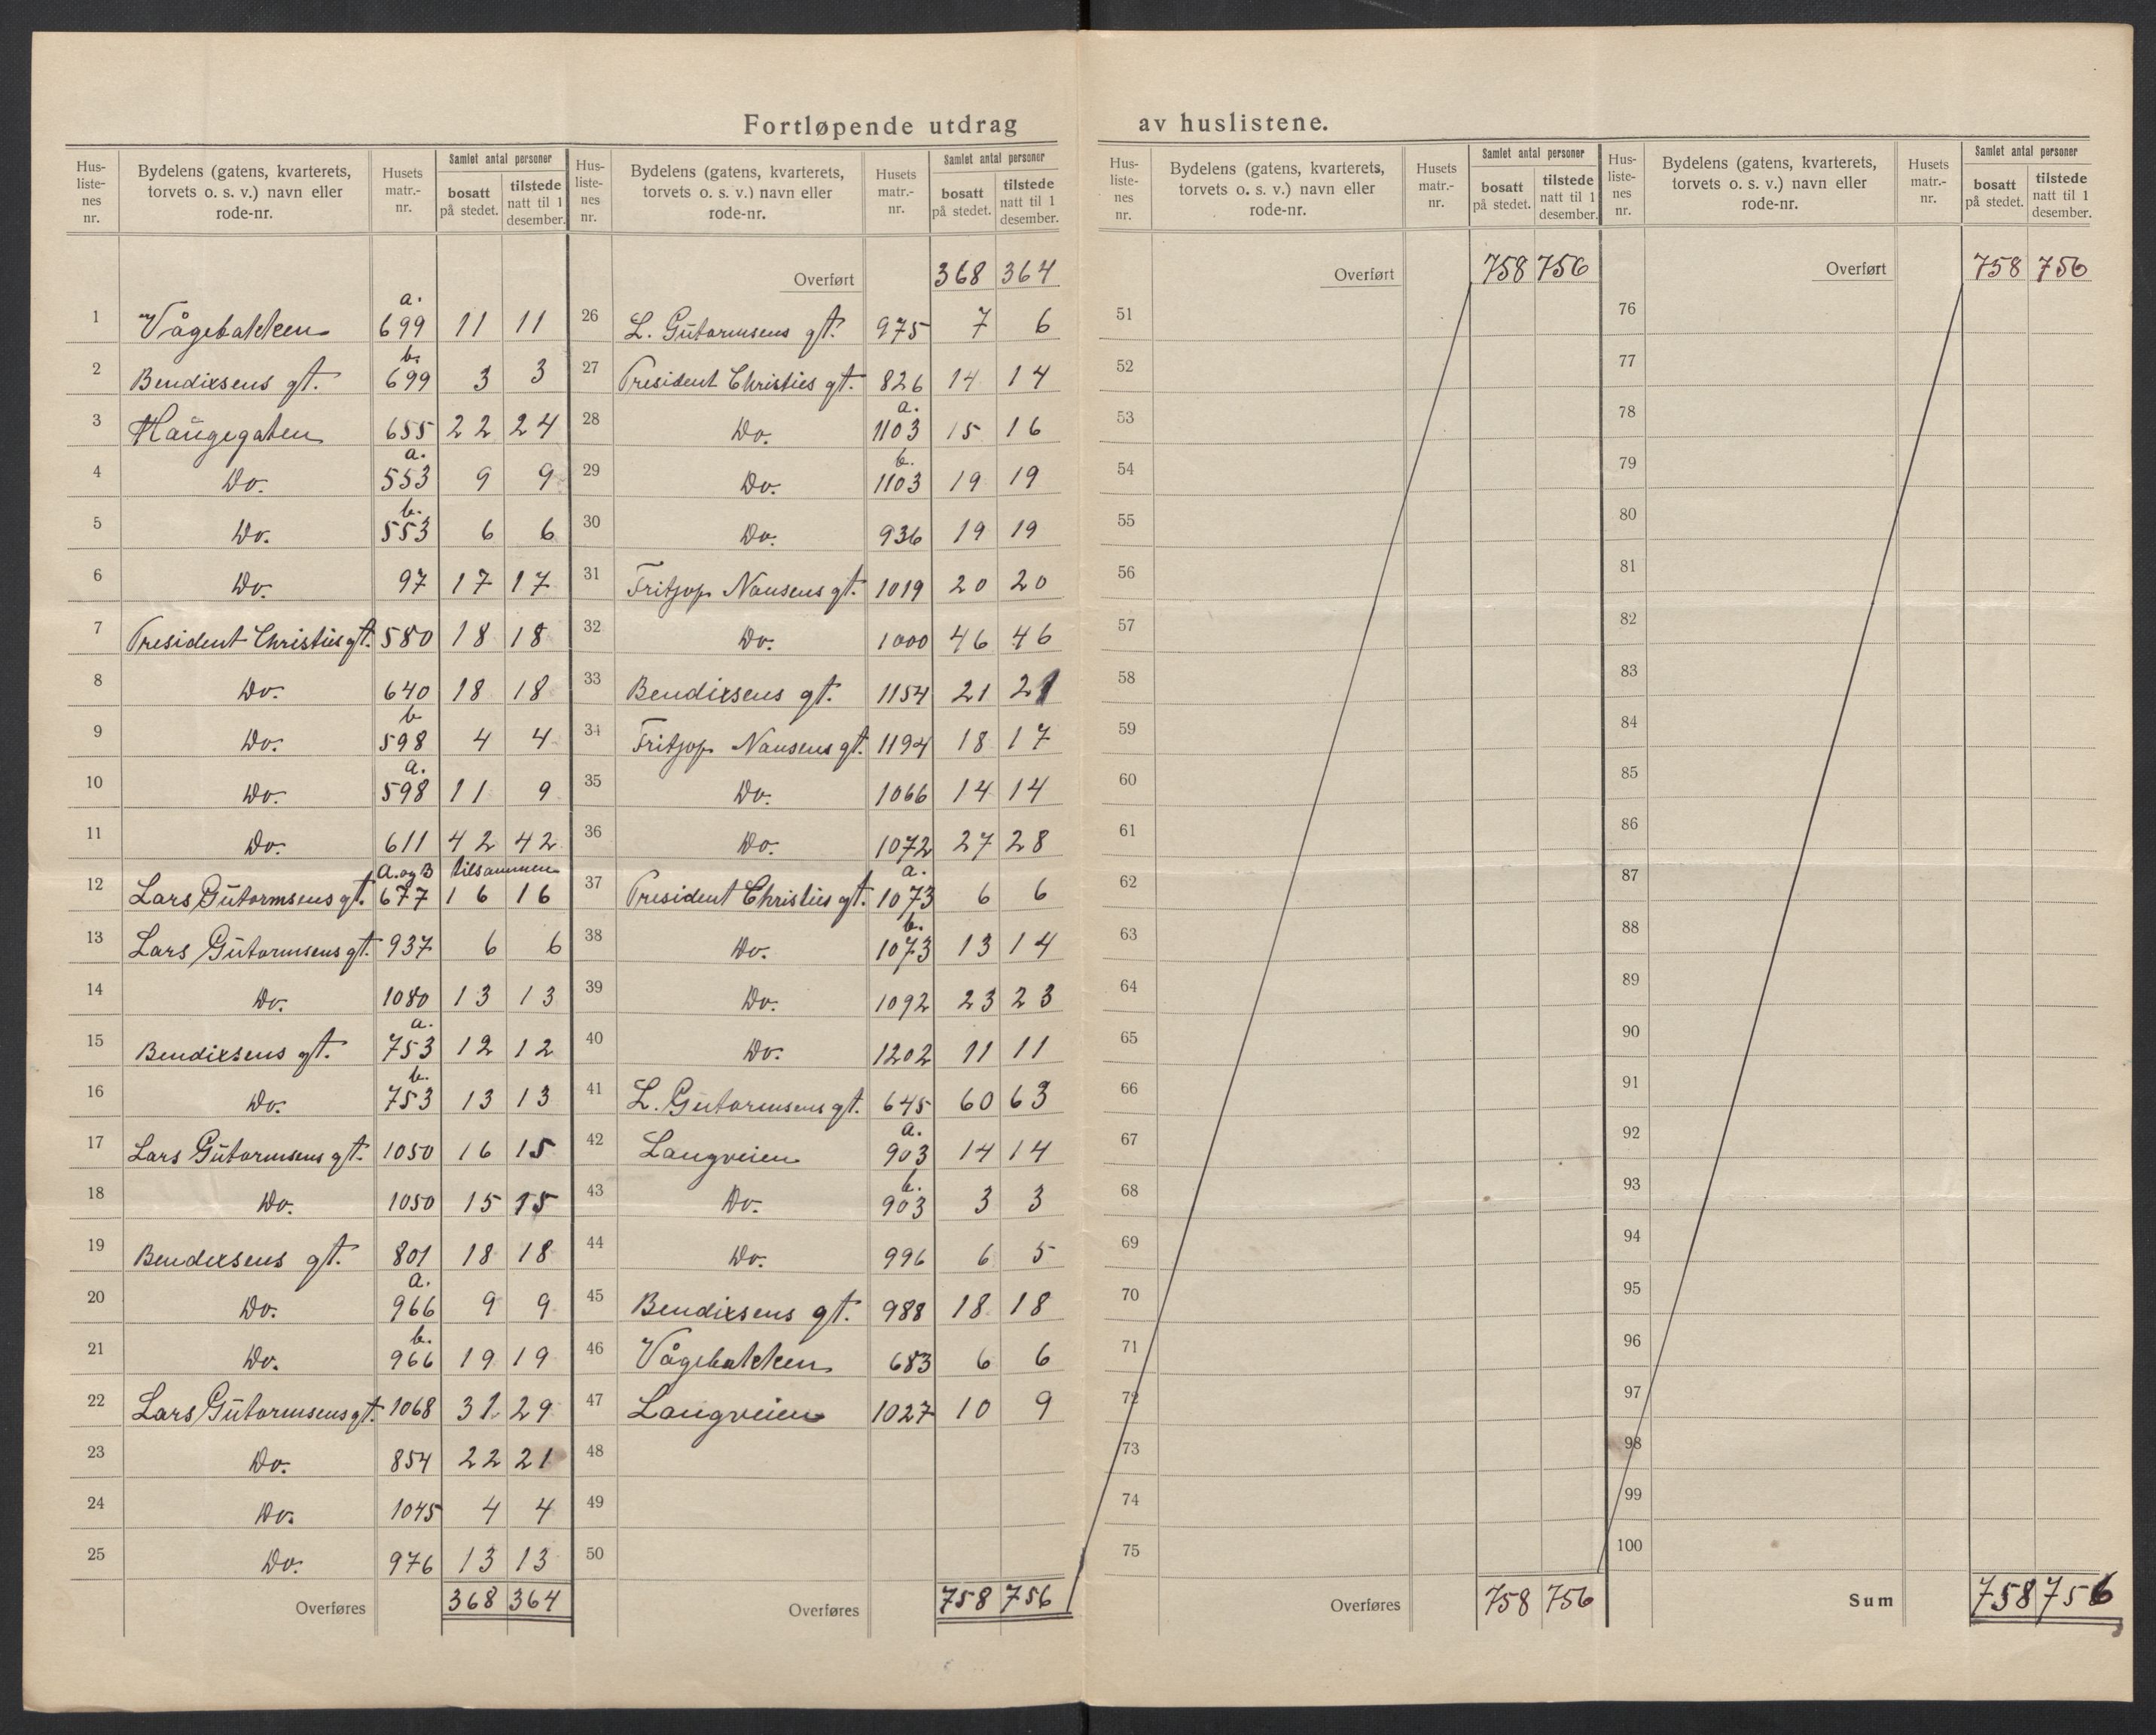 Fortløpende utdrag av huslistene.
Hus-liste-nes nr. | Bydelens (gatens, kvarterets, torvets o. s. v.) navn eller rode-nr. | Husets matr.-nr. | Samlet antal personer bosatt på stedet. | tilstede natt til 1 desember.
1 Vågebakken a. 699 11 11
2 Bendixsens gt. b. 699 3 3
3 Haugegaten 655 22 24
4 Do. a. 553 9 9
5 Do. b. 553 6 6
6 Do. 97 17 17
7 President Christies gt. 580 18 18
8 Do. 640 18 18
9 Do. b 598 4 4
10 Do. a. 598 11 9
11 Do. 611 42 42
12 Lars Gutormsens gt. A. og B tilsammen 677 16 16
13 Lars Gutormsens gt. 937 6 6
14 Do. 1080 13 13
15 Bendixsens gt. a. 753 12 12
16 Do. b. 753 13 13
17 Lars Gutormsens gt. 1050 16 15
18 Do. 1050 15 15
19 Bendixsens gt. 801 18 18
20 Do. a. 966 9 9
21 Do. b. 966 19 19
22 Lars Gutormsens gt. 1068 31 29
23 Do. 854 22 21
24 Do. 1045 4 4
25 Do. 976 13 13
Overføres 368 364
Hus-liste-nes nr. | Bydelens (gatens, kvarterets, torvets o. s. v.) navn eller rode-nr. | Husets matr.-nr. | Samlet antal personer bosatt på stedet. | tilstede natt til 1 desember.
Overført 368 364
26 L. Gutormsens gt. 975 7 6
27 President Christies gt. 826 14 14
28 Do. a. 1103 15 16
29 Do. b. 1103 19 19
30 Do. 936 19 19
31 Fritjop Nansens gt. 1019 20 20
32 Do. 1000 46 46
33 Bendixsens gt. 1154 21 21
34 Fritjop Nansens gt. 1194 18 17
35 Do. 1066 14 14
36 Do. 1072 27 28
37 President Christies gt. a. 1073 6 6
38 Do. b. 1073 13 14
39 Do. 1092 23 23
40 Do. 1202 11 11
41 L. Gutormsens gt. 645 60 63
42 Langveien a. 903 14 14
43 Do. b. 903 3 3
44 Do. 996 6 5
45 Bendixsens gt. 988 18 18
46 Vågebakken 683 6 6
47 Langveien 1027 10 9
48
49
50
Overføres 758 756
Hus-liste-nes nr. | Bydelens (gatens, kvarterets, torvets o. s. v.) navn eller rode-nr. | Husets matr.-nr. | Samlet antal personer bosatt på stedet. | tilstede natt til 1 desember.
Overført 758 756
51
52
53
54
55
56
57
58
59
60
61
62
63
64
65
66
67
68
69
70
71
72
73
74
75
Overføres 758 756
Hus-liste-nes nr. | Bydelens (gatens, kvarterets, torvets o. s. v.) navn eller rode-nr. | Husets matr.-nr. | Samlet antal personer bosatt på stedet. | tilstede natt til 1 desember.
Overført 758 756
76
77
78
79
80
81
82
83
84
85
86
87
88
89
90
91
92
93
94
95
96
97
98
99
100
Sum 758 756